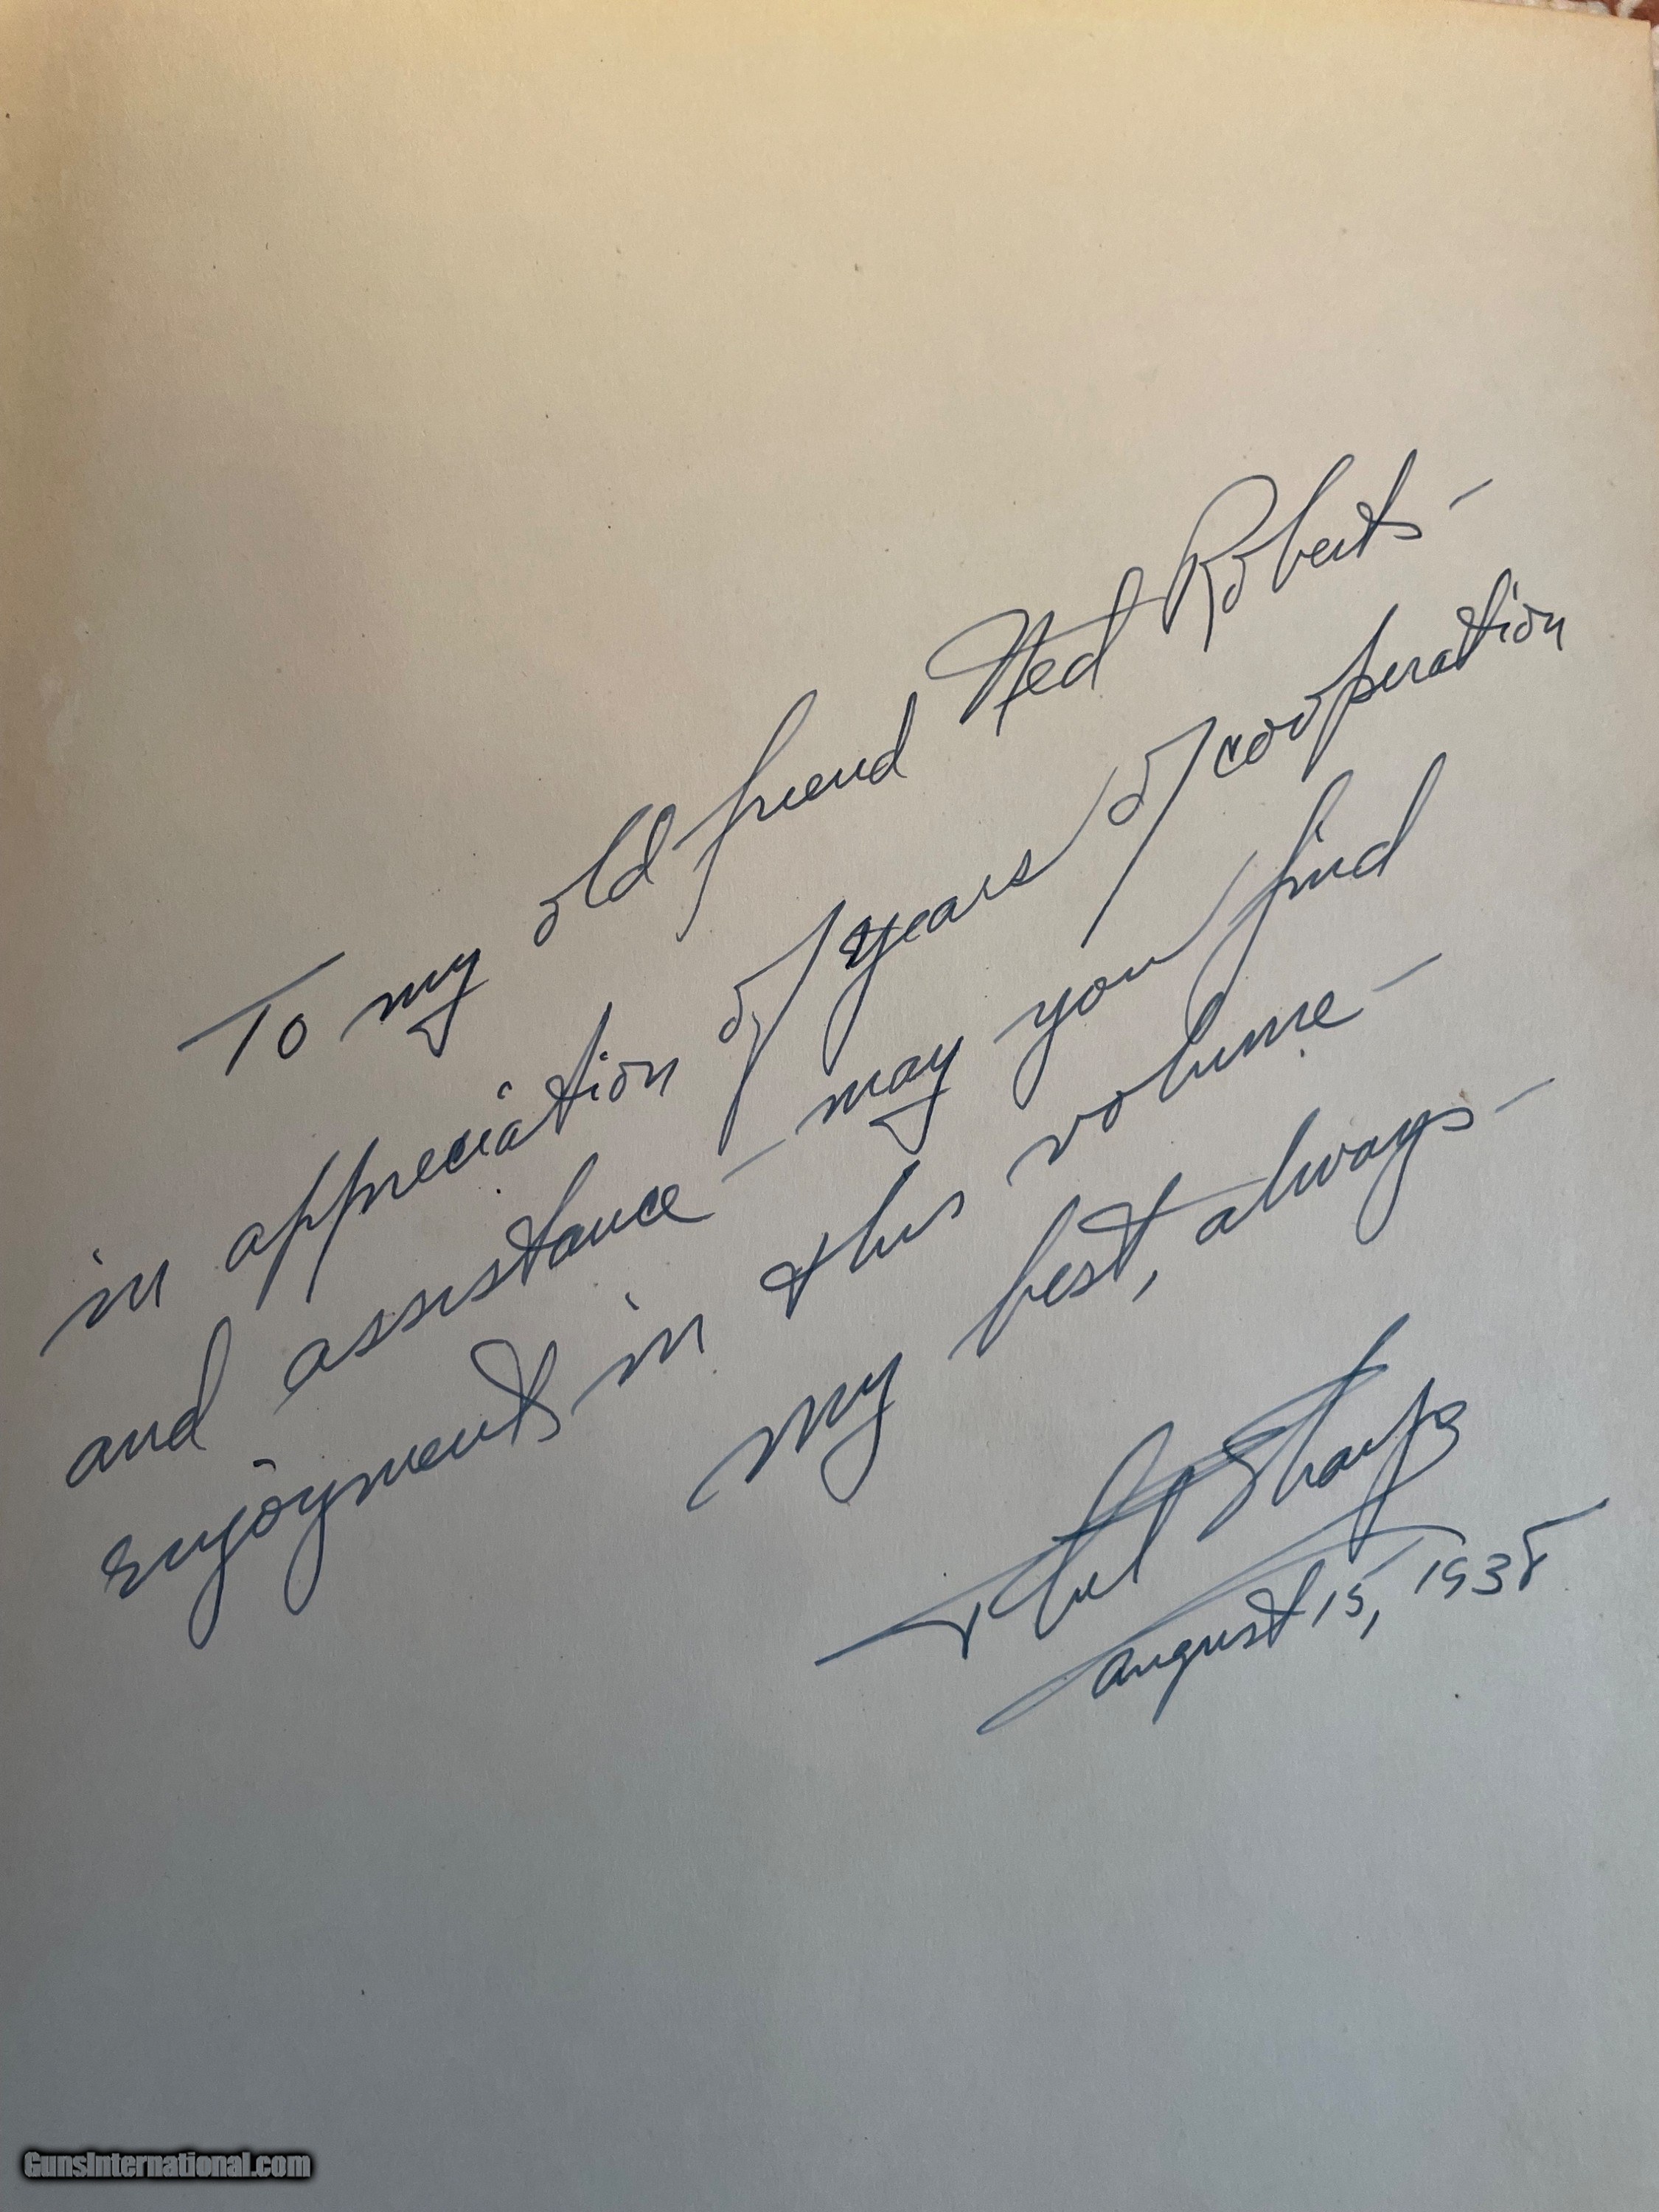 To my old friend Ned Roberts -
in appreciation of years of cooperation
and assistance - may you find
enjoyment in this volume -
my best, always -
Phil Sharpe
August 15, 1938
GunsInternational.com